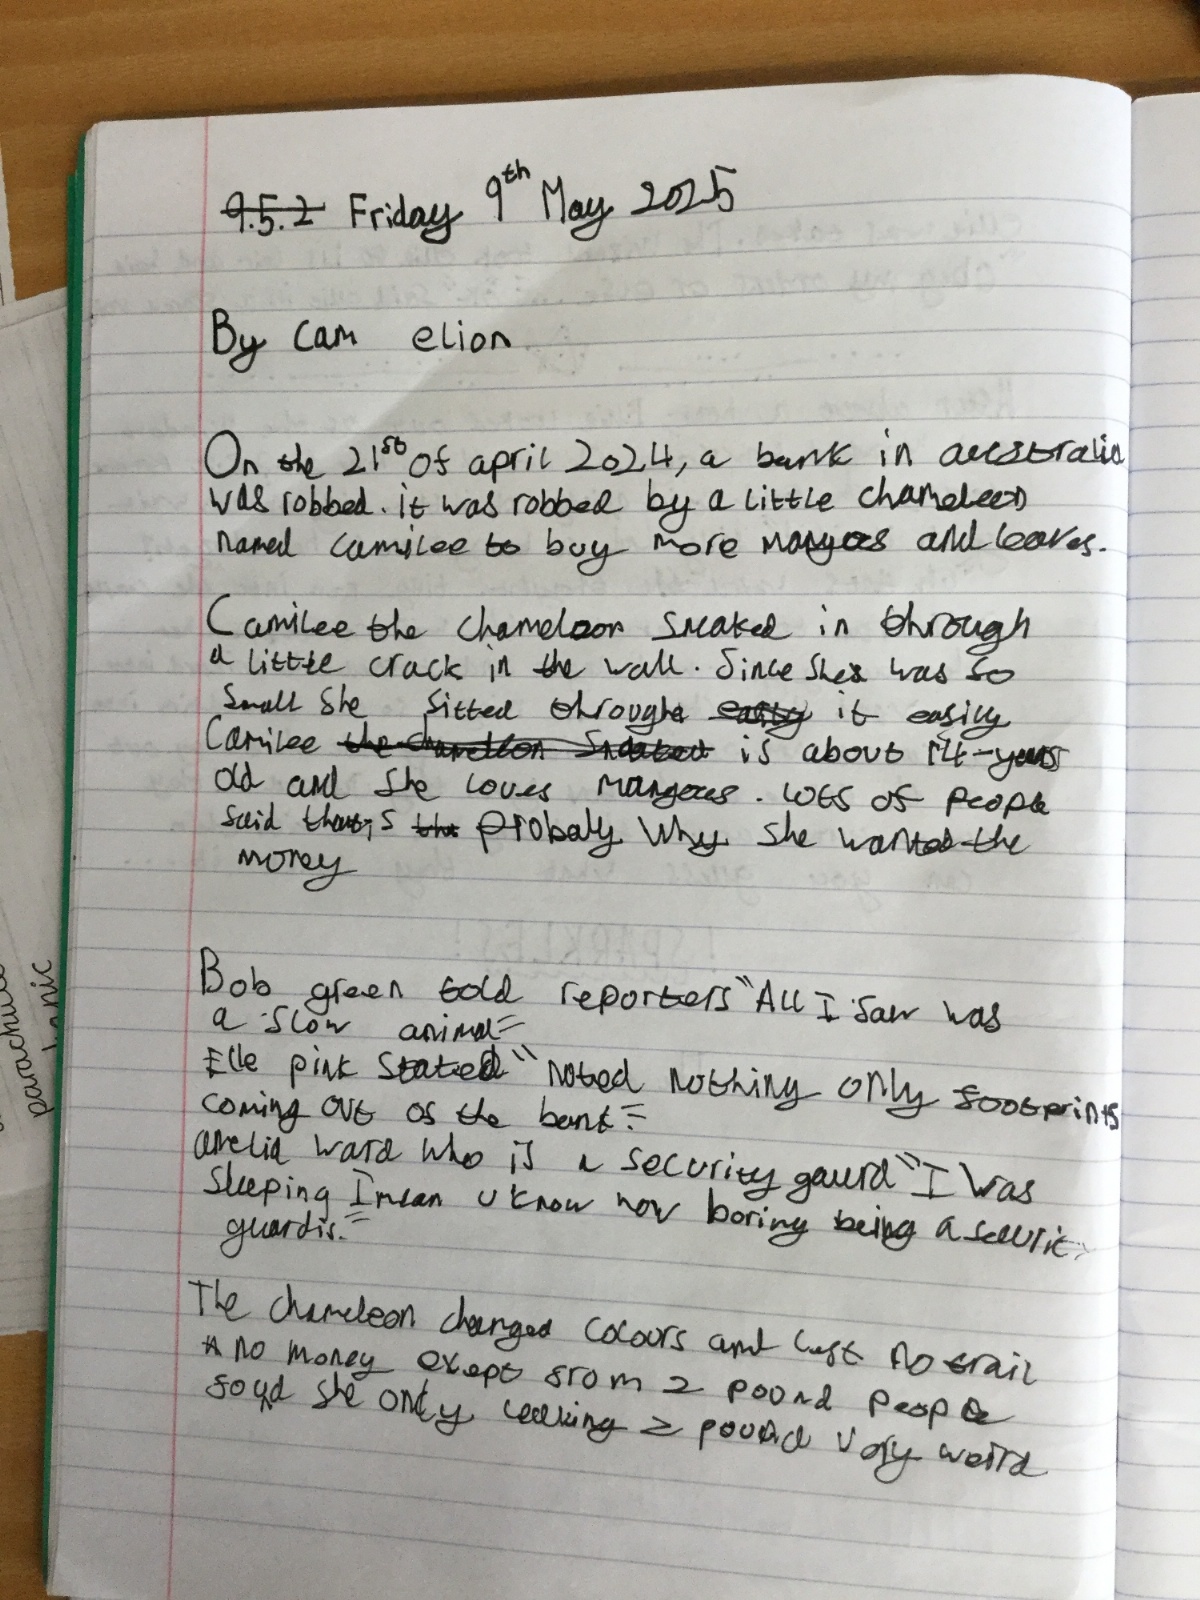 9.5.2 Friday 9th May 2025
By Cam elion
On the 21st of april 2024, a bank in austrailia
was robbed. it was robbed by a little chameleon
named camilee to buy more mangoes and leaves.
Camilee the chameleon sneaked in through
a little crack in the wall. Since she was so
small she fitted through easily it easily
Camilee the chameleon sneaked is about 14-years
old and she loves mangoes. lots of people
said that's the probaly why she wanted the
money
Bob green told reporters "All I saw was
a slow animal"
Elle pink stated "noted nothing only footprints
coming out of the bank"
amelia ward who is a security gaurd "I was
sleeping I mean u know how boring being a securit
guard is."
The chameleon changed colours and left no trail
no money exept from 2 pound people
found she only leaking 2 pound very weird
parachute
panic